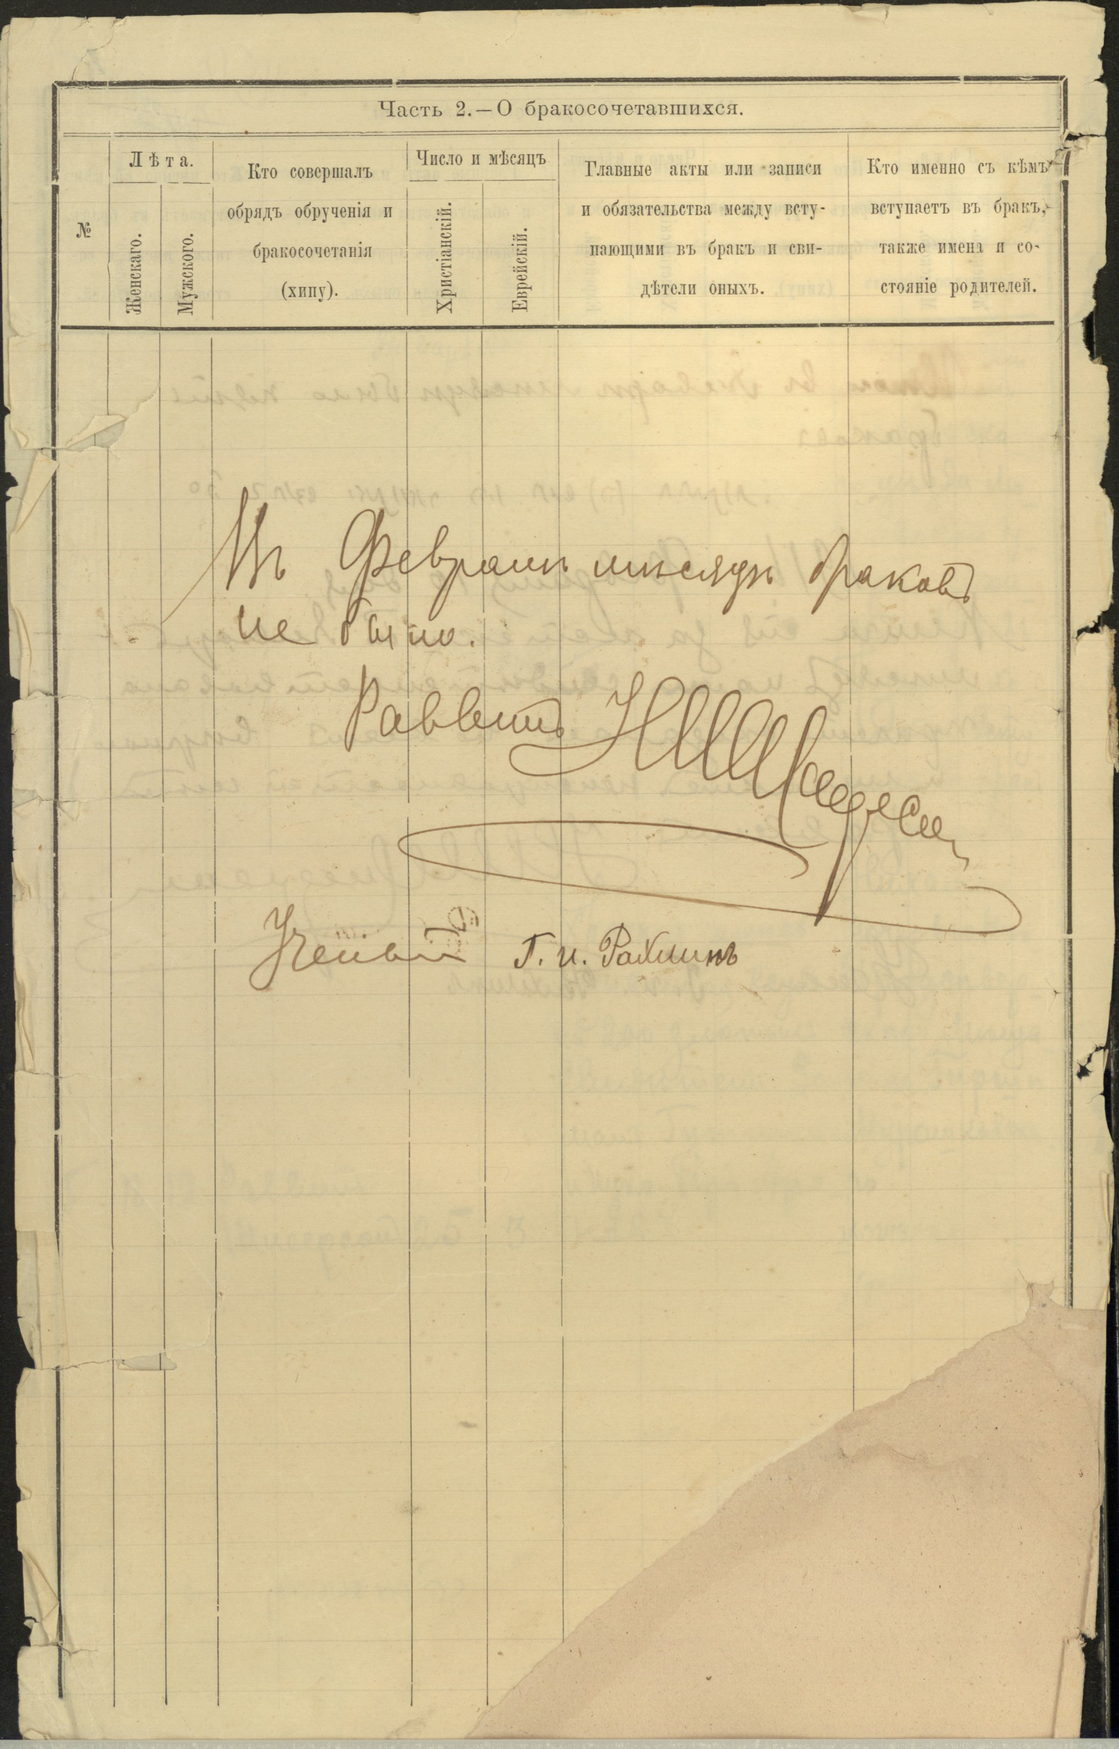 Часть 2.—О бракосочетавшихся.
№
Лѣта.
Женскаго.
Мужского.
Кто совершалъ
обрядъ обрученія и
бракосочетанія
(хипу).
Число и мѣсяцъ
Христіанскій.
Еврейскій.
Главные акты или записи
и обязательства между всту-
пающими въ бракъ и сви-
дѣтели оныхъ.
Кто именно съ кѣмъ
вступаетъ въ бракъ,
также имена и со-
стояніе родителей.
Въ Февралѣ мѣсяцѣ браковъ
не было.
Раввинъ
Ученый Г. И. Рахлинъ